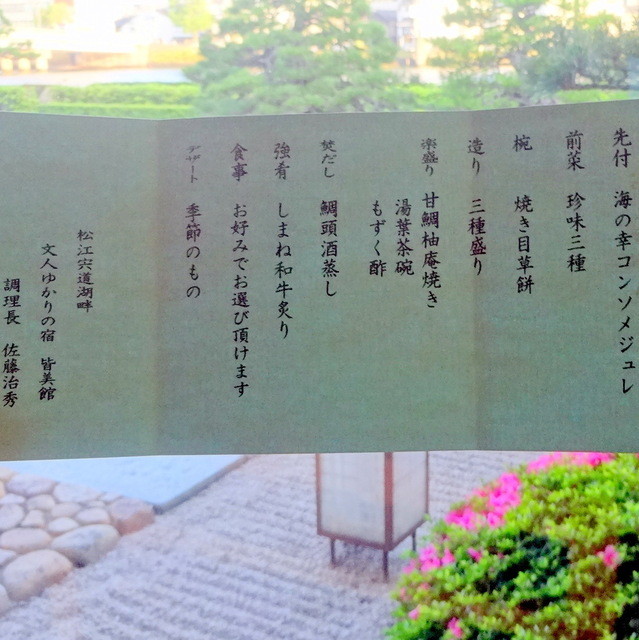 先付 海の幸コンソメジュレ
前菜 珍味三種
椀 焼き目草餅
造り 三種盛り
楽盛り 甘鯛柚庵焼き
湯葉茶碗
もずく酢
焚だし 鯛頭酒蒸し
強肴 しまね和牛炙り
食事 お好みでお選び頂けます
デザート 季節のもの
松江宍道湖畔
文人ゆかりの宿 皆美館
調理長 佐藤治秀